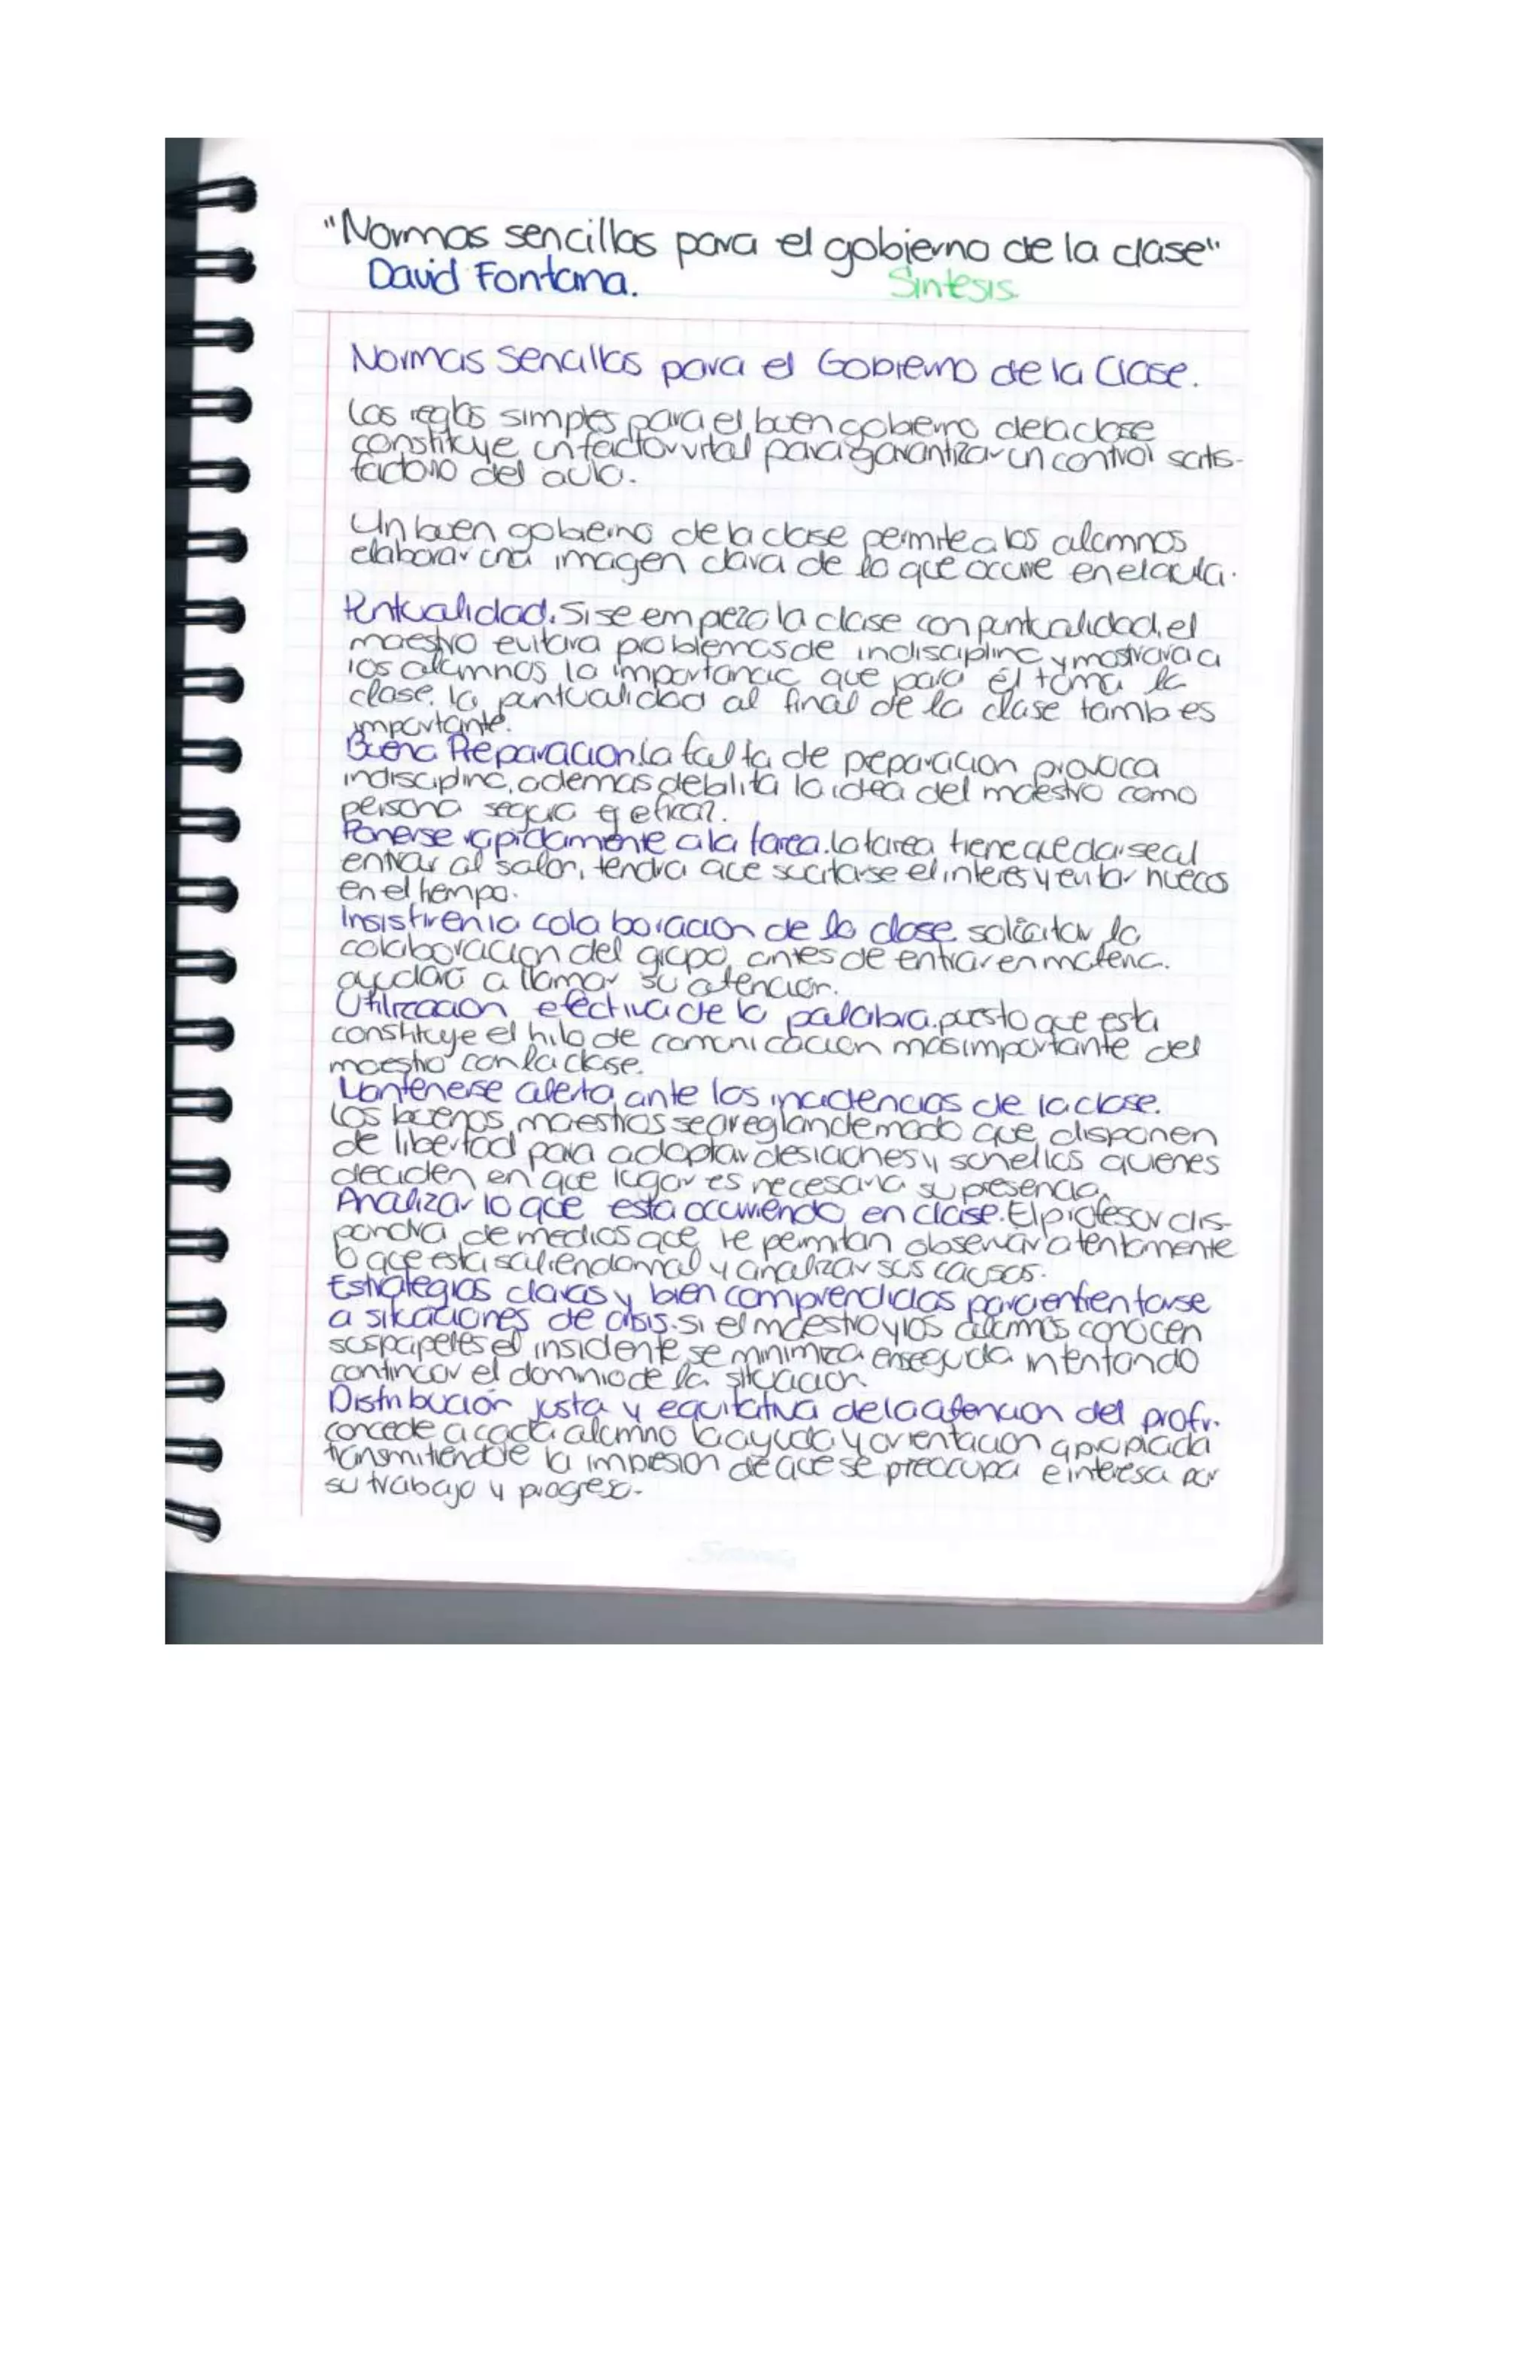 "Normas sencillas para el gobierno de la clase"
David Fontana. Sintesis
Normas Sencillas para el Gobierno de la Clase.
Las reglas simples para el buen gobierno de la clase
constituye un factor vital para garantizar un control satis-
factorio del aula.
Un buen gobierno de la clase permite a los alumnos
elaborar una imagen clara de lo que ocurre en el aula.
Puntualidad. Si se empeza la clase con puntualidad, el
maestro evitara problemas de indisciplina y mostrara a
los alumnos la importancia que para él toma la
clase. la puntualidad al final de la clase tamb es
importante.
Buena Preparacion. La falta de preparacion provoca
indisciplina, ademas debilita la idea del maestro como
persona segura y eficaz.
Ponerse rapidamente a la tarea. La tarea tiene que darse al
entrar al salon, tendra que sucitarse el interes y evitar huecos
en el tiempo.
Insistir en la colaboracion de la clase. solicitar la
colaboracion del grupo, antes de entrar en materia.
ayudara a llamar su atencion.
Utilizacion efectiva de la palabra. puesto que esta
constituye el hilo de comunicacion mas importante del
maestro con la clase.
Mantenerse alerta ante las incidencias de la clase.
Los buenos maestros se arreglan de modo que disponen
de libertad para adoptar desiaciones y son ellos quienes
deciden en que lugar es necesaria su presencia.
Analizar lo que esta ocurriendo en clase. El profesor dis-
pondra de medios que le permitan observar atentamente
lo que esta saliendo mal y analizar sus causas.
Estrategias claras y bien comprendidas para enfrentarse
a situaciones de crisis. Si el maestro y los alumnos conocen
sus papeles el insidente se minimiza enseguida intentando
continuar el dominio de la situacion.
Distribución justa y equitativa de la atencion del profr.
concede a cada alumno la ayuda y orientacion apropiada
transmitiendole la impresion de que se preocupa e interesa por
su trabajo y progreso.